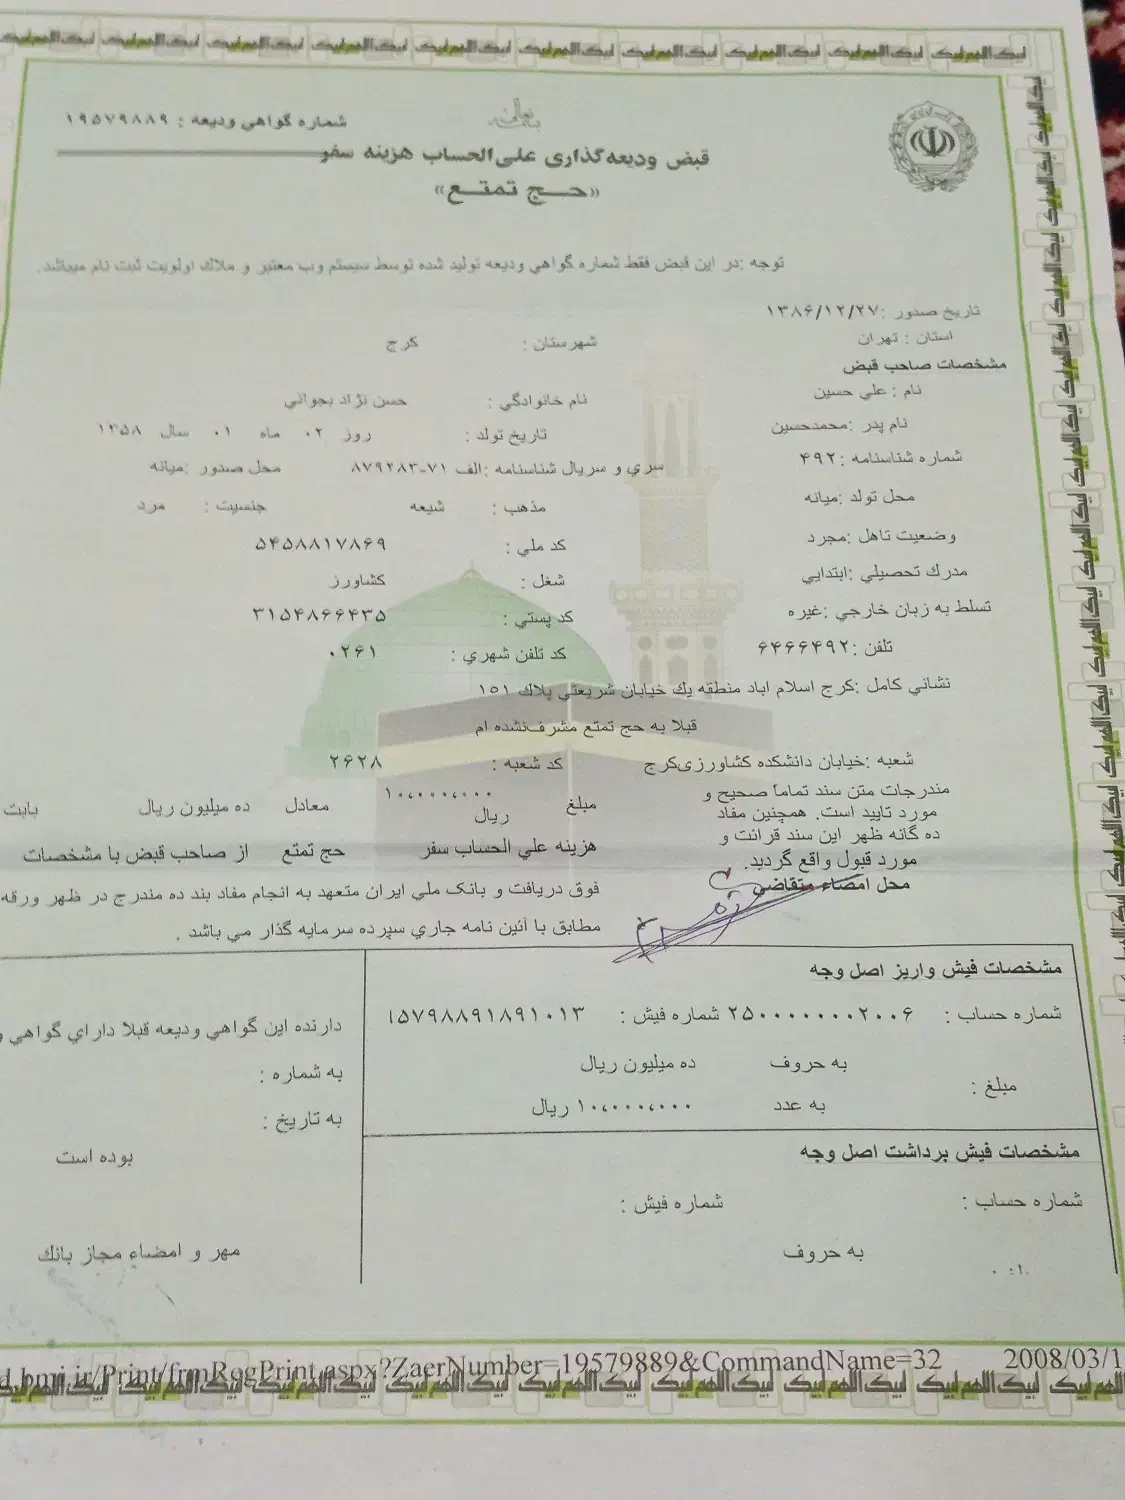 بسمه تعالی
شماره گواهي وديعه : ۱۹۵۷۹۸۸۹
قبض وديعه‌گذاری علی‌الحساب هزينه سفر
«حـــج تمتـــع»
توجه :در اين قبض فقط شماره گواهي وديعه توليد شده توسط سيستم وب معتبر و ملاك اولويت ثبت نام ميباشد.
تاريخ صدور :۱۳۸۶/۱۲/۲۷
استان : تهران شهرستان : كرج
مشخصات صاحب قبض
نام : علي حسين نام خانوادگي : حسن نژاد بجواني
نام پدر :محمدحسين تاريخ تولد : روز ۰۲ ماه ۰۱ سال ۱۳۵۸
شماره شناسنامه :۴۹۲ سري و سريال شناسنامه :الف ۷۱-۸۷۹۲۸۳ محل صدور :ميانه
محل تولد :ميانه مذهب : شيعه جنسيت : مرد
وضعيت تاهل :مجرد كد ملي : ۵۴۵۸۸۱۷۸۶۹
مدرك تحصيلي :ابتدايي شغل : كشاورز
تسلط به زبان خارجي :غيره كد پستي : ۳۱۵۴۸۶۶۴۳۵
تلفن :۶۴۶۶۴۹۲ كد تلفن شهري : ۰۲۶۱
نشاني كامل :كرج اسلام اباد منطقه يك خيابان شريعتي پلاك ۱۵۱
قبلا به حج تمتع مشرف‌نشده ام
شعبه :خيابان دانشكده كشاورزی‌كرج كد شعبه : ۲۶۲۸
مندرجات متن سند تماماً صحيح و
مورد تاييد است. همچنين مفاد
ده گانه ظهر اين سند قرائت و
مورد قبول واقع گرديد.
محل امضاء متقاضي
مبلغ ۱۰،۰۰۰،۰۰۰ ريال معادل ده ميليون ريال بابت
هزينه علي الحساب سفر حج تمتع از صاحب قبض با مشخصات
فوق دريافت و بانک ملي ايران متعهد به انجام مفاد بند ده مندرج در ظهر ورقه
مطابق با آئين نامه جاري سپرده سرمايه گذار مي باشد .
مشخصات فيش واريز اصل وجه
شماره حساب : ۲۵۰۰۰۰۰۰۰۰۲۰۰۶ شماره فيش : ۱۵۷۹۸۸۹۱۸۹۱۰۱۳
مبلغ :
به حروف ده ميليون ريال
به عدد ۱۰،۰۰۰،۰۰۰ ريال
مشخصات فيش برداشت اصل وجه
شماره حساب : شماره فيش :
به حروف
دارنده اين گواهي وديعه قبلا داراي گواهي و
به شماره :
به تاريخ :
بوده است
مهر و امضاء مجاز بانك
d.bmi.ir/Print/frmRegPrint.aspx?ZaerNumber=19579889&CommandName=32 2008/03/1